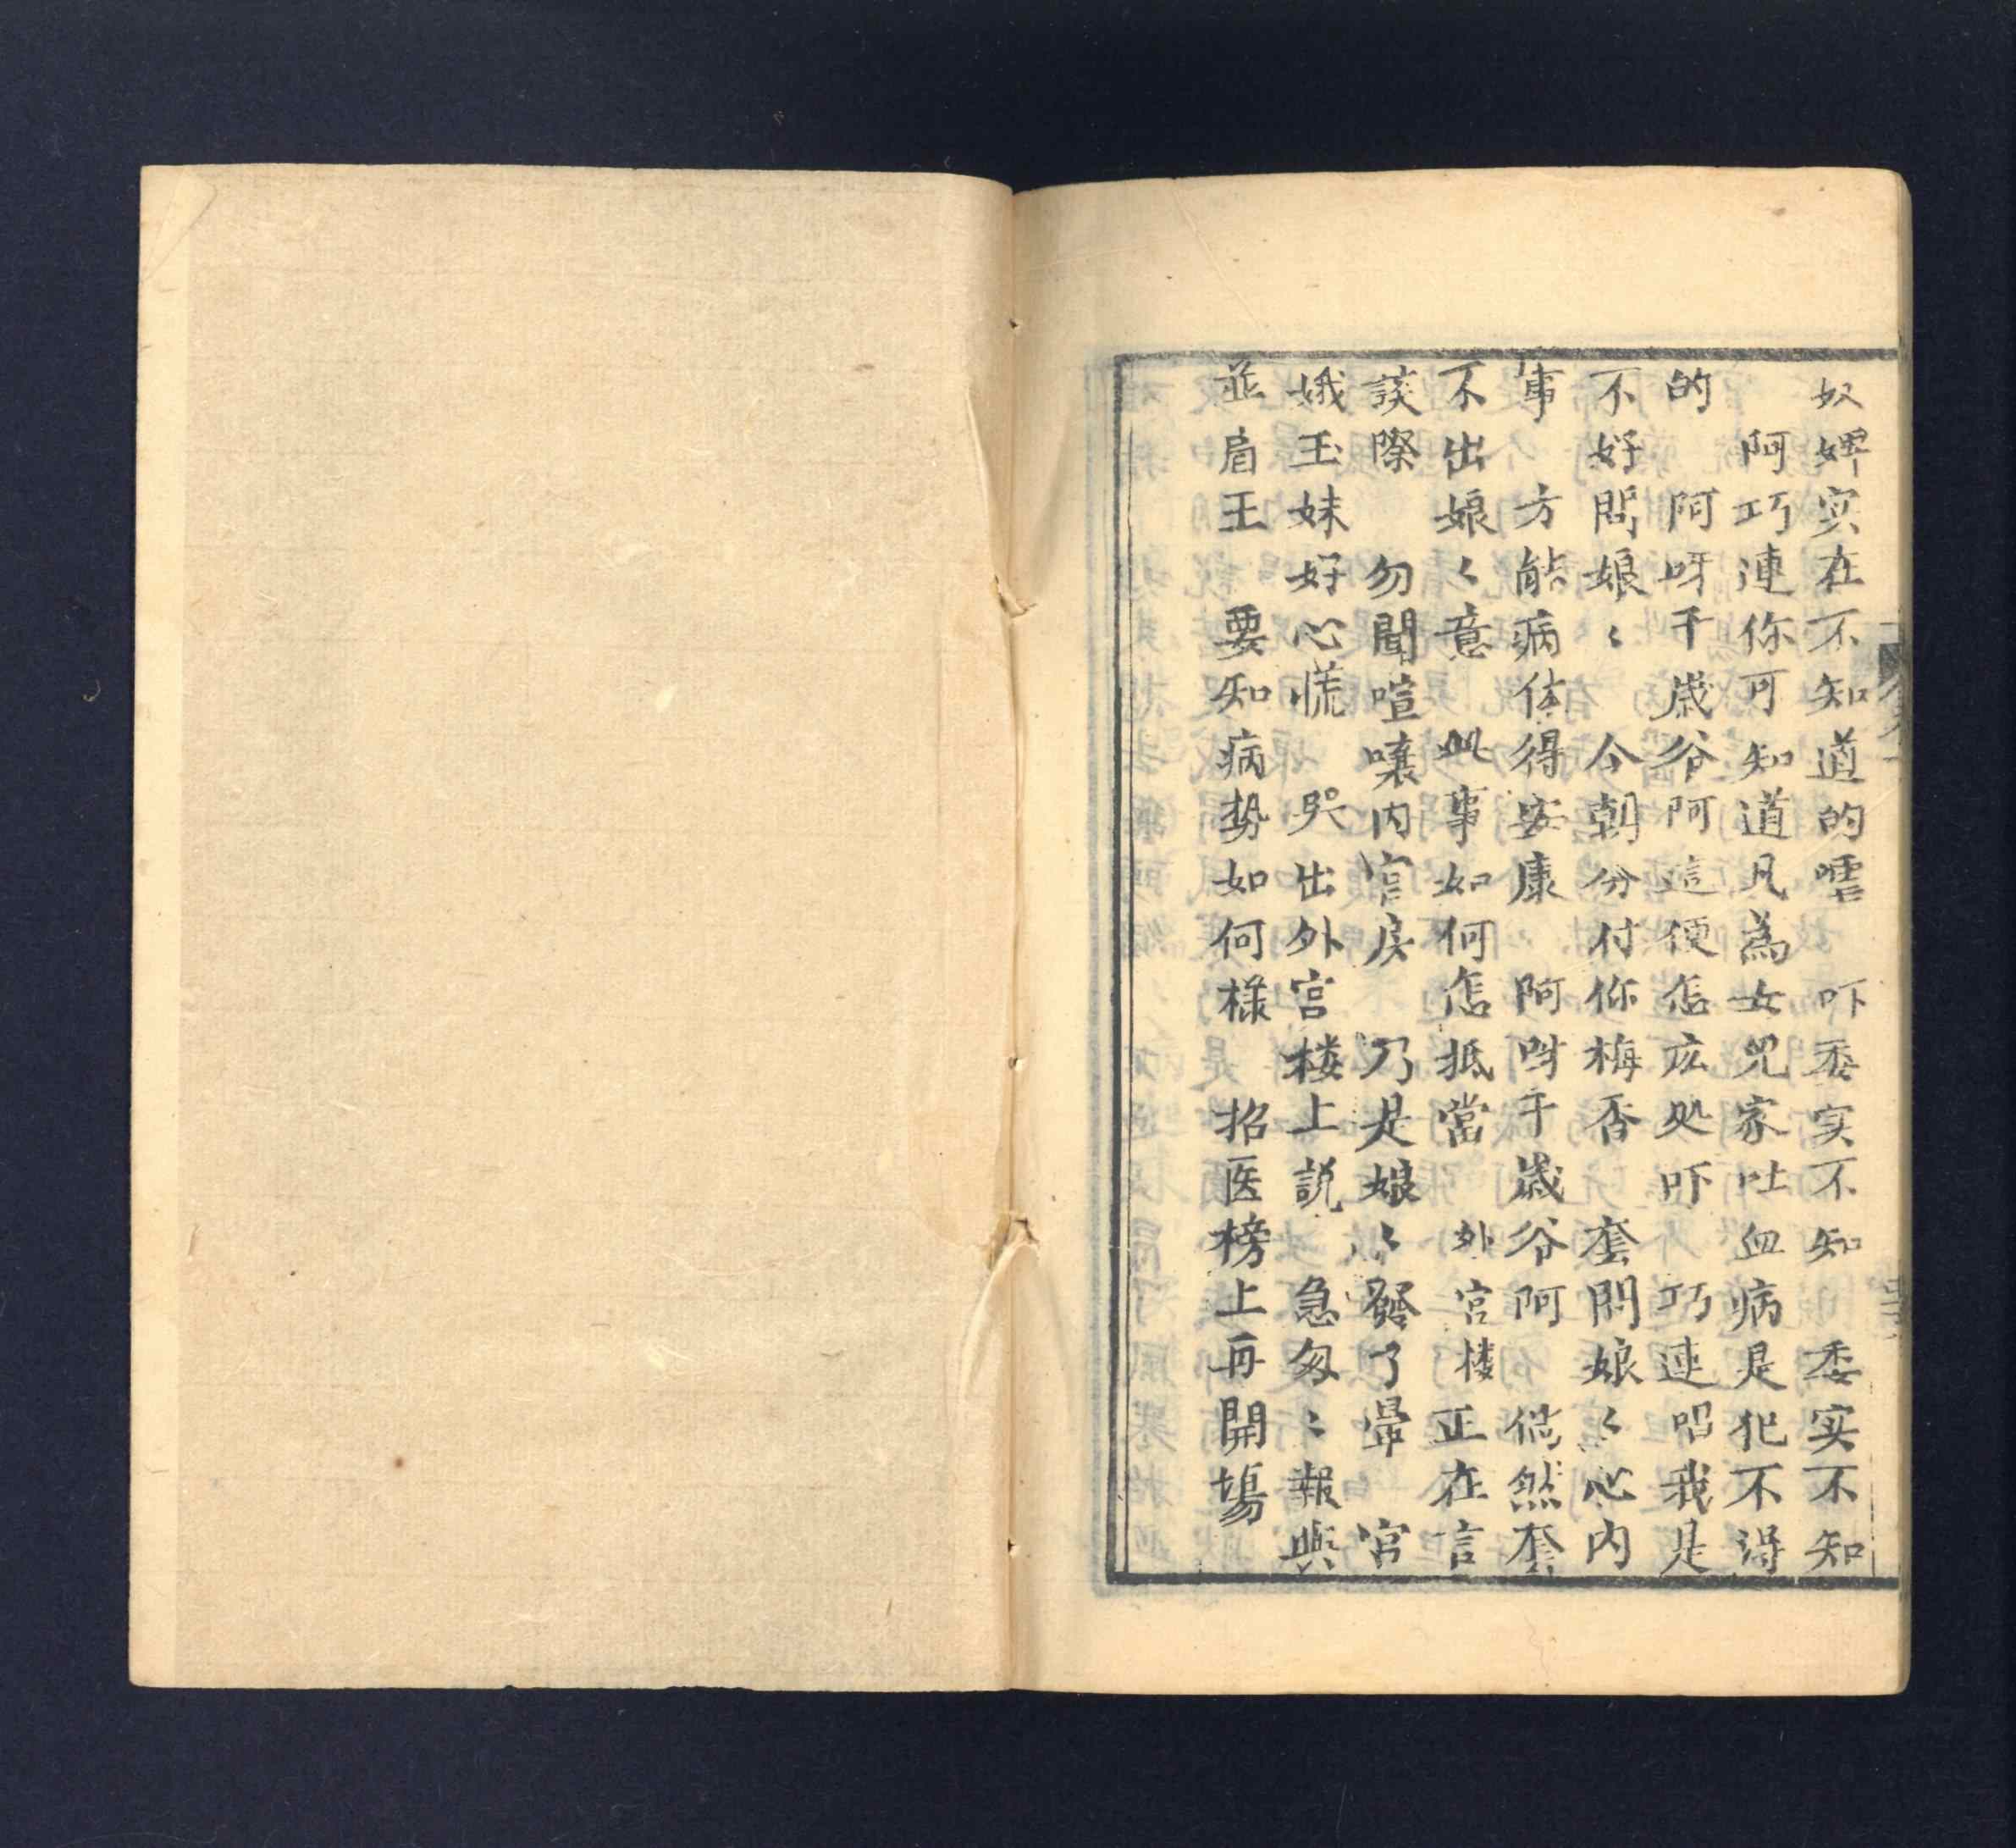 奴婢实在不知道的嚜　吓委实不知　委实不知
　阿巧連你可知道凡為女児家吐血病是犯不得
的　阿呀千歲爷阿這便怎広処吓　巧連唱我是
不好問娘〻　今朝分付你梅香　套問娘〻心内
事　方能病体得安康　阿呀千歲爷阿　倘然套
不出娘〻意　此事如何怎抵當　外宮楼正在言
談際　勿聞喧嚷内宮房　乃是娘〻發了暈　宮
娥玉妹好心慌　哭出外宮楼上説　急匆〻報與
並肩王　要知病势如何樣　招医榜上再開場